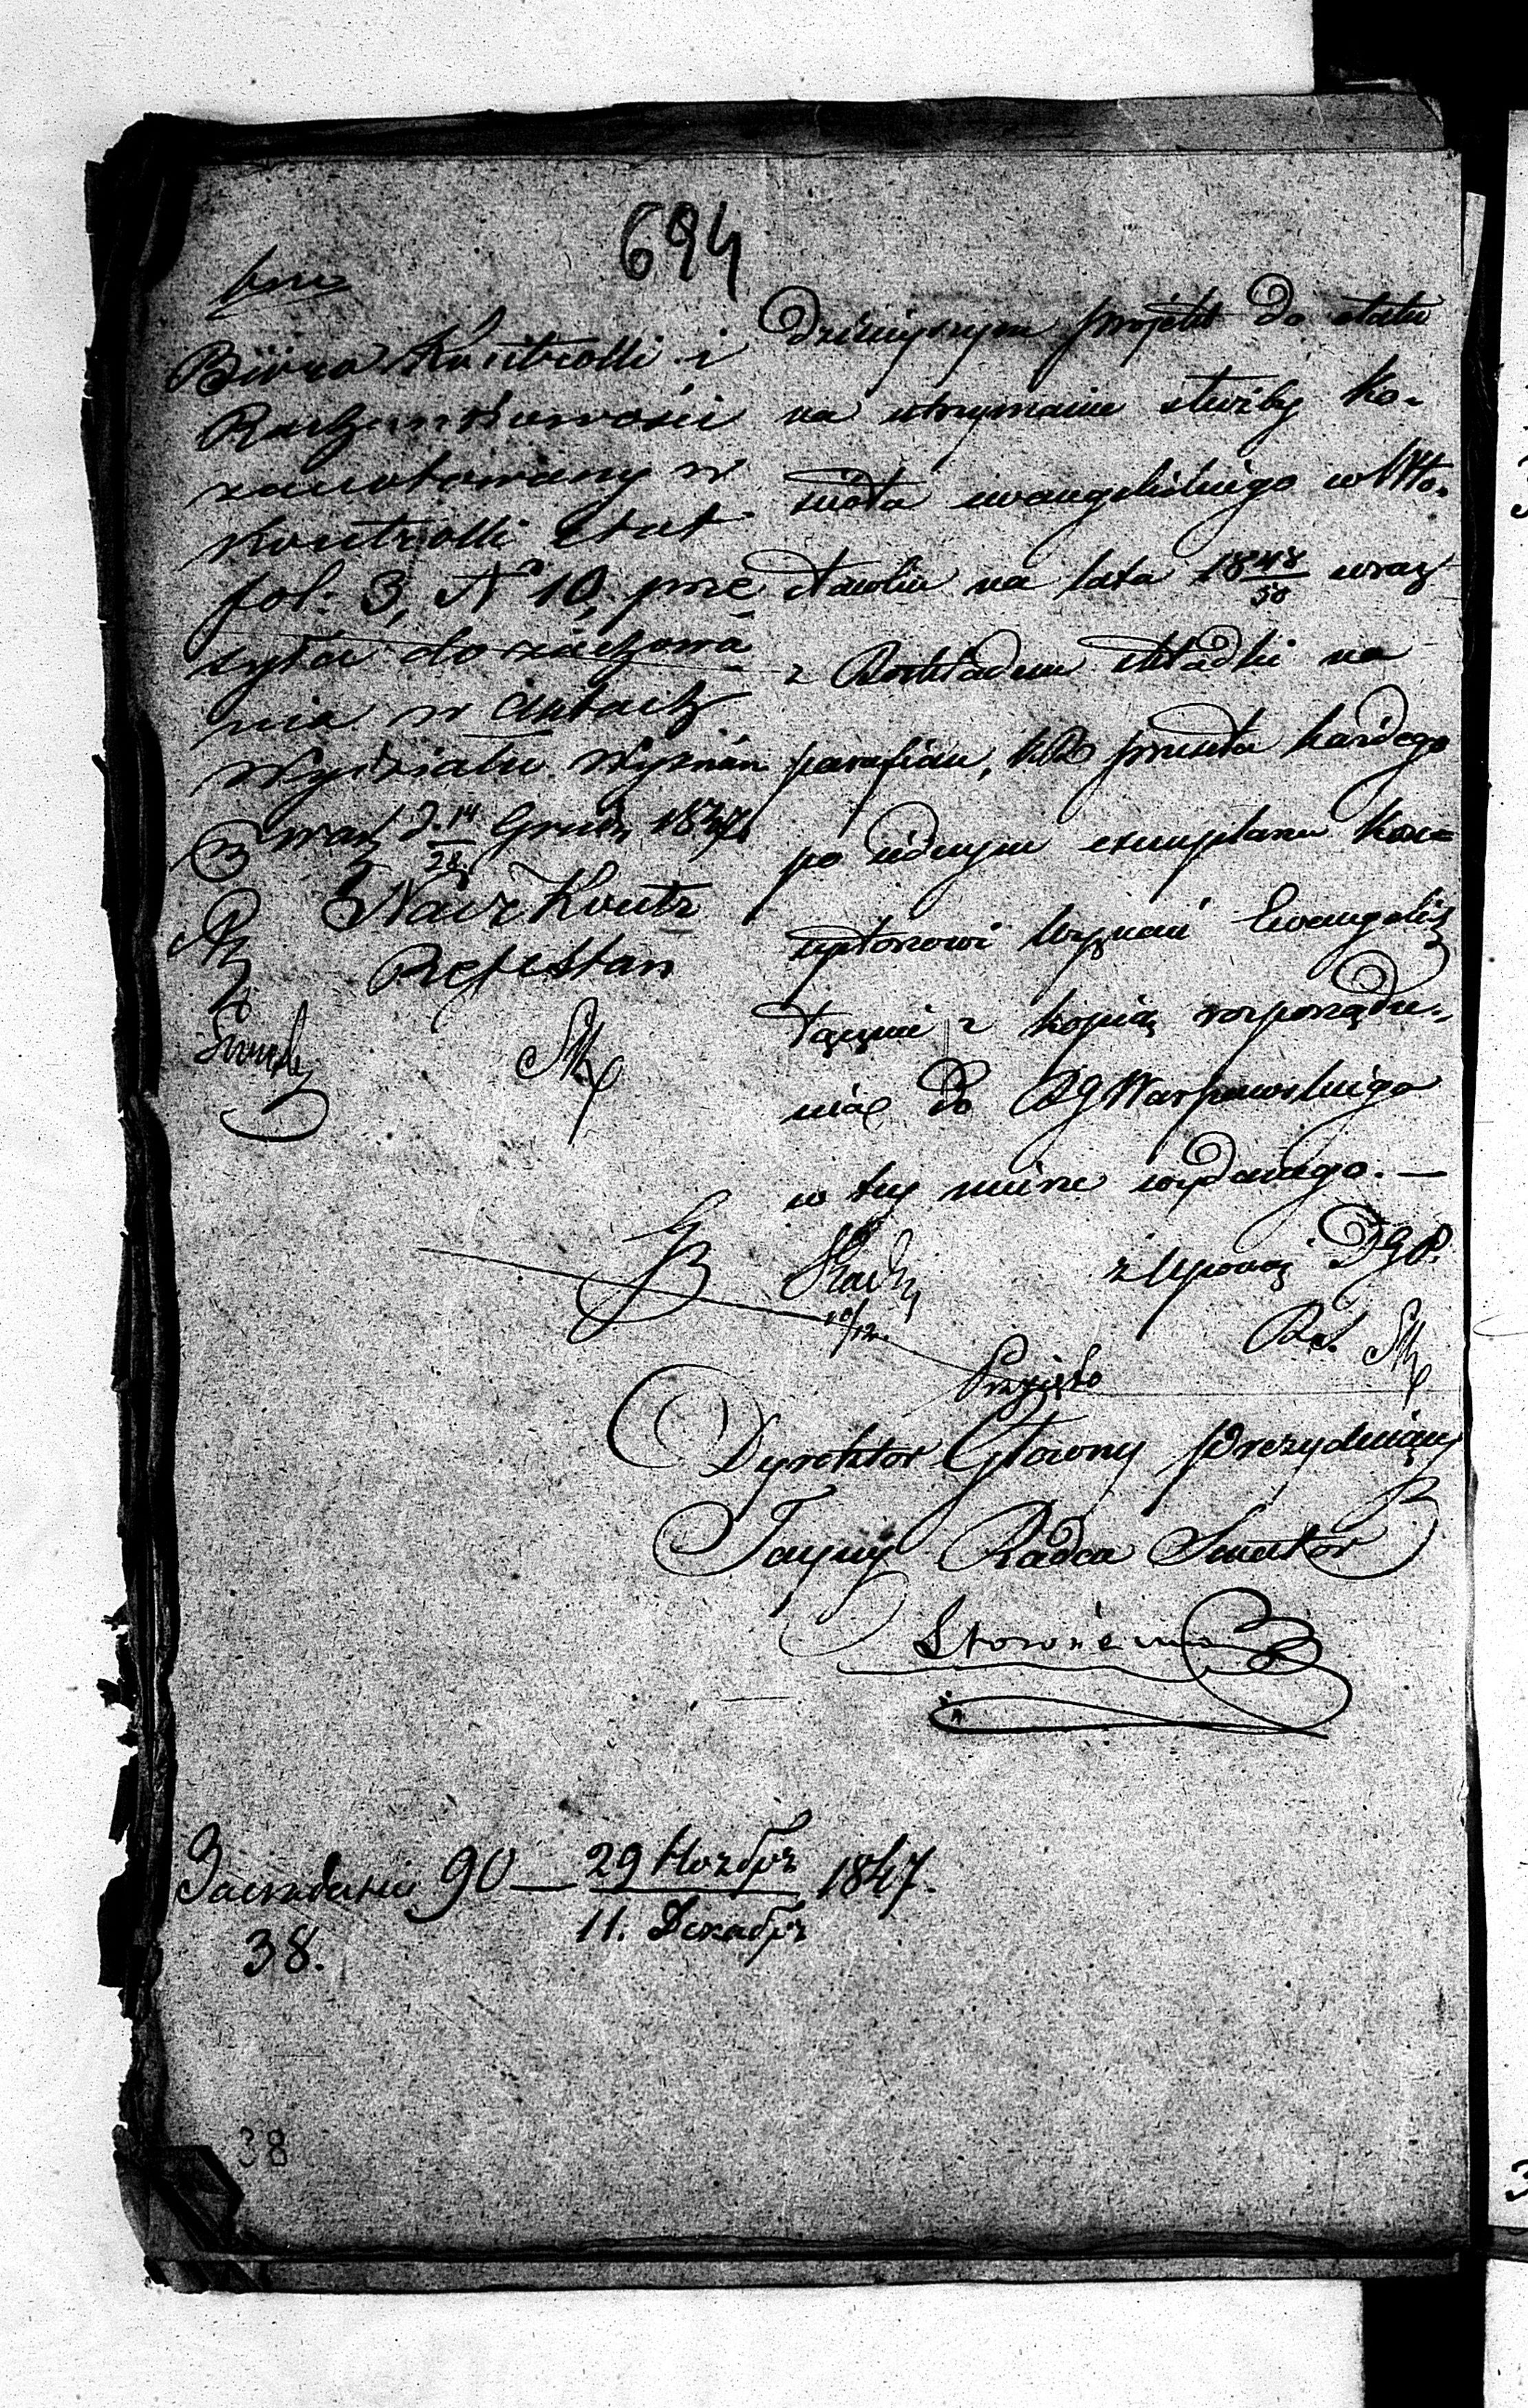 694
Biuro Kontrolli i
Rachunkowości
zanotowany w
Kontrolli Etat
fol: 3, N 10, prze
syła do zachowa
nia w aktach
Wydziału Wyznań
Warz d. 14/28 Grud 1847
Nacz Kontr
Ref Stan
dzisiejszym projekt do etatu
na utrzymanie służby Ko-
ścioła ewangelickiego w Wło-
cławku na lata 1848/50 wraz
z Rozkładem składki na
parafian, przesyła każdego
po jednym exemplarzu Kon-
systorowi Wyznań Ewangelic
łącznie z kopią rozporządze-
nia do RG Warszawskiego
w tej mierze wydanego. —
z Upoważ DGP.
Przyjęto
Dyrektor Główny Prezydujący
Tajny Radca Senator
Заседание 90 — 29 Ноября / 11. Декабря 1847.
38.
38